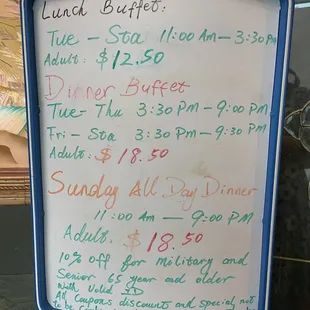 Lunch Buffet:
Tue - Sta 11:00 Am - 3:30 Pm
Adult: $12.50
Dinner Buffet
Tue - Thu 3:30 Pm - 9:00 PM
Fri - Sta 3:30 Pm - 9:30 PM
Adult: $18.50
Sunday All Day Dinner
11:00 Am - 9:00 PM
Adult. $18.50
10% off for military and
Senior 65 year and older
With Valid ID
All Coupons discounts and special not
to be